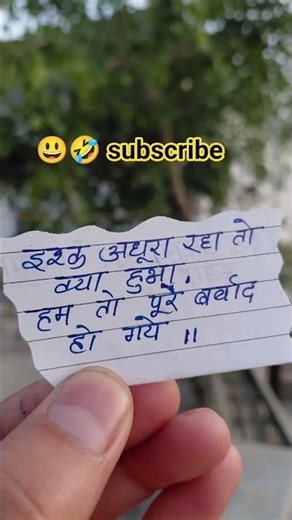 😃🤣 subscribe
इश्क अधूरा रहा तो
क्या हुआ,
हम तो पूरे बर्वाद
हो गये ॥